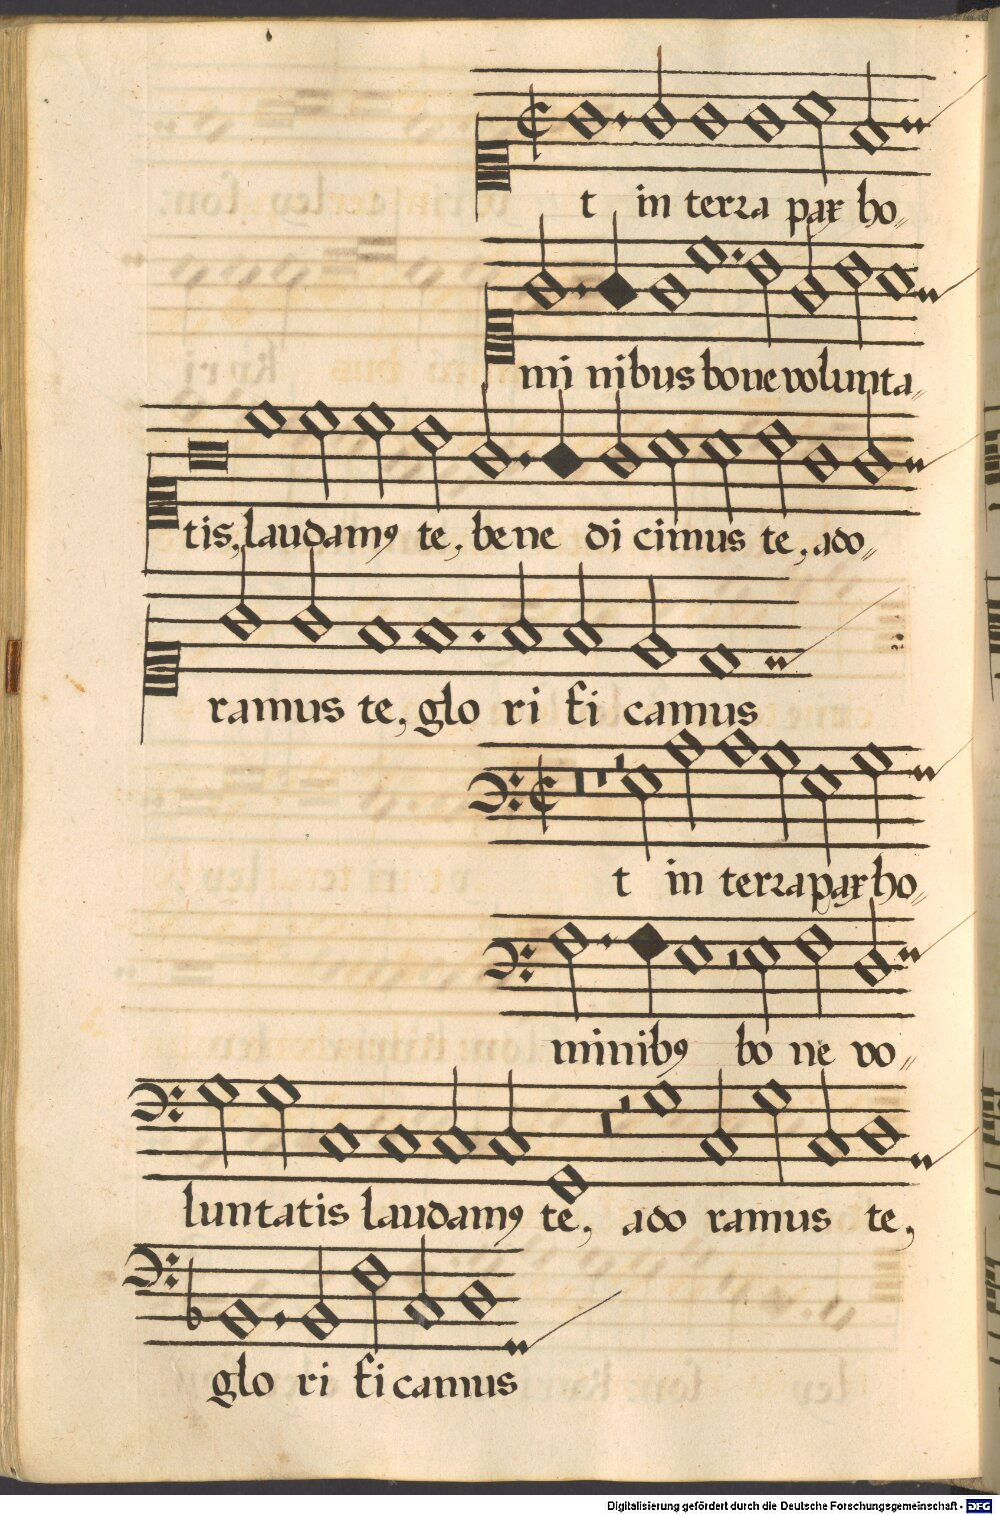 t in terra pax ho〃
mi nibus bone volunta〃
tis, laudamꝰ te, bene di cimus te, ado〃
ramus te, glo ri fi camus
t in terra pax ho〃
minibꝰ bo ne vo〃
luntatis laudamꝰ te, ado ramus te,
glo ri fi camus
Digitalisierung gefördert durch die Deutsche Forschungsgemeinschaft - DFG